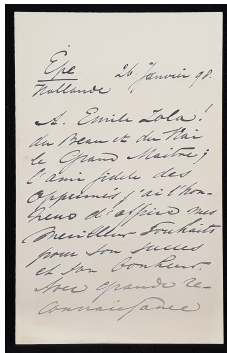 Épe
Hollande 26 Janvier 98.
A. Emile Zola!
du Beau et du Vrai
le Grand Maitre;
l'ami fidele des
Opprimés, j'ai l'hon-
neur d'offrir mes
Meilleur Souhaits
pour son succes
et son bonheur.
Avec grande re-
connaissance